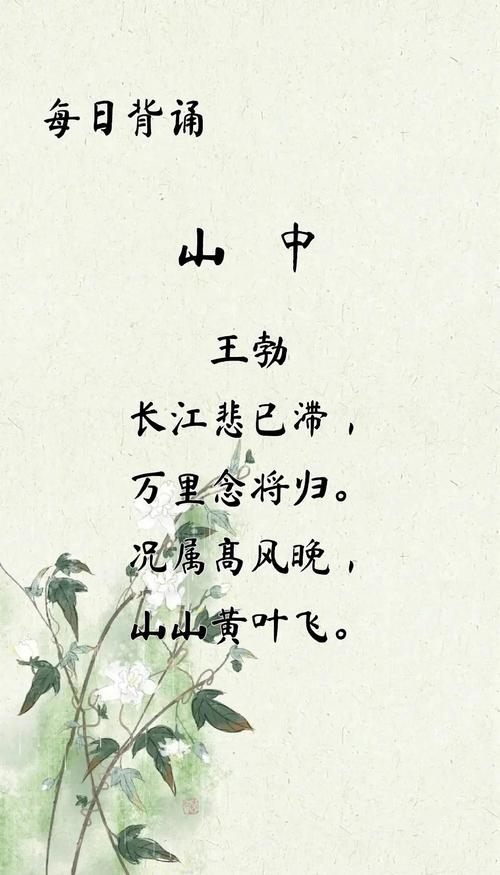 每日背诵
山 中
王勃
长江悲已滞，
万里念将归。
况属高风晚，
山山黄叶飞。